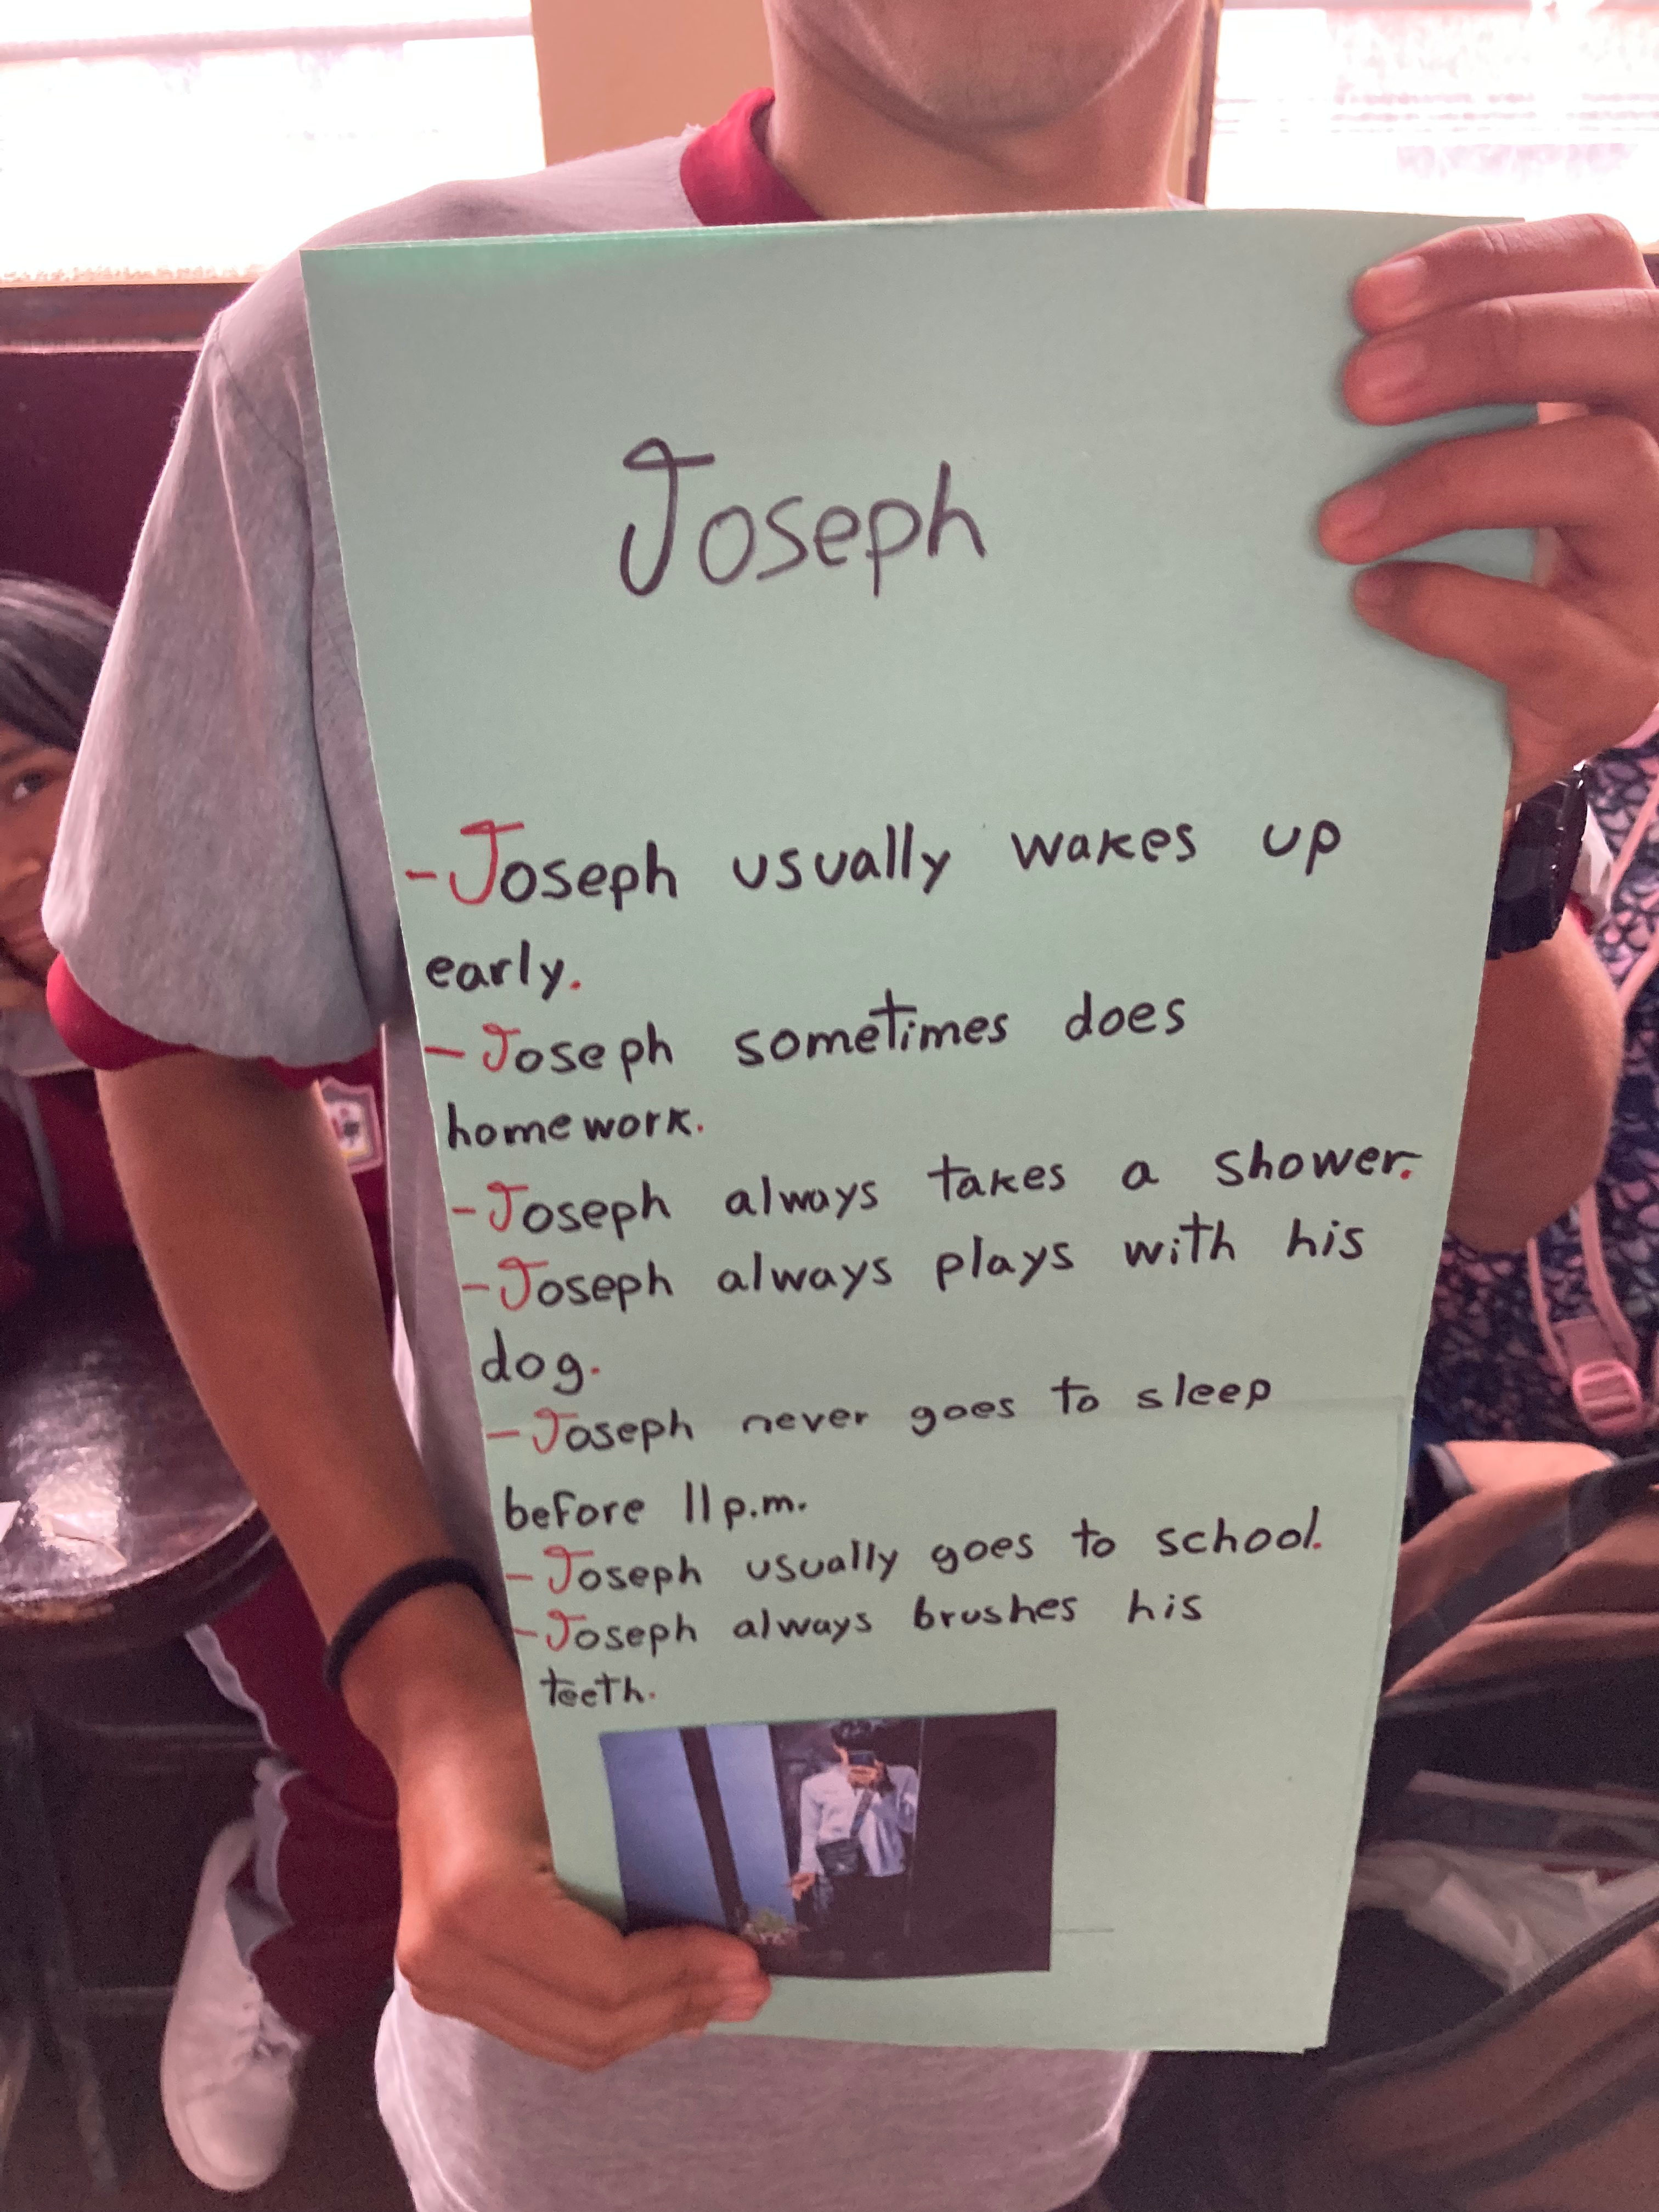 Joseph
-Joseph usually wakes up
early.
-Joseph sometimes does
homework.
-Joseph always takes a shower.
-Joseph always plays with his
dog.
-Joseph never goes to sleep
before 11 p.m.
-Joseph usually goes to school.
-Joseph always brushes his
teeth.